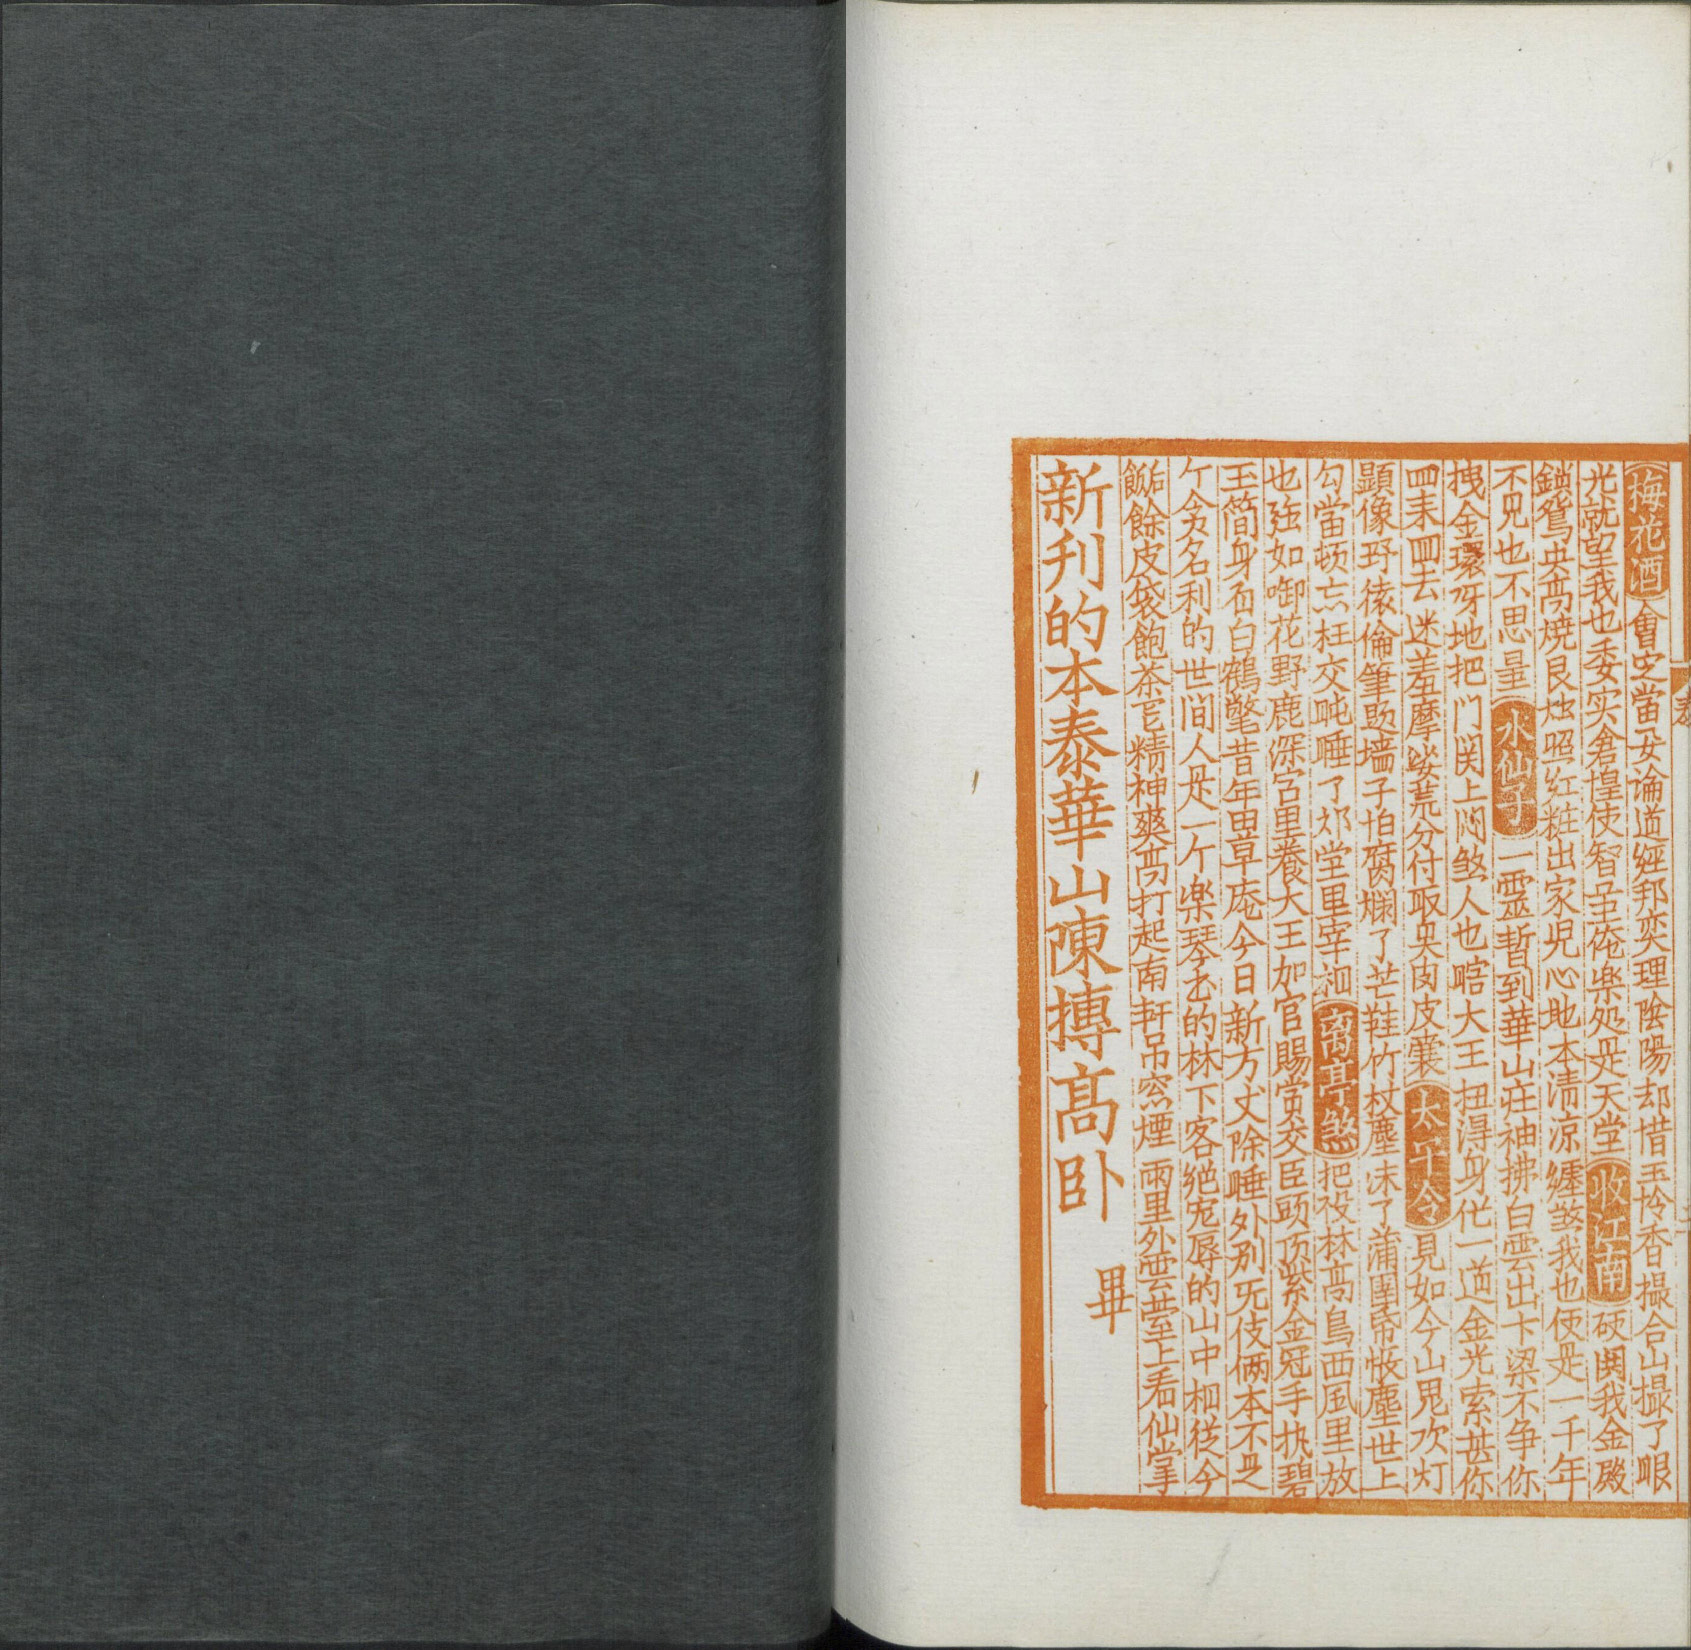 梅花酒 會定當女論道經邦奕理陰陽却惜玉怜香撮合山撮了眼
光就望我也委实倉惶使智量俺樂处是天堂 收江南 硬関我金殿
鎖鴛央高燒艮烛照红粧出家児心地本清凉纏㷀我也便是一千年
不見也不思量 水仙子 一靈暫到華山庄袖拂白雲出卞梁不争你
拽金環呀地把门関上闷煞人也瞎大王扭淂身化一道金光索甚你
回来回去迷羞摩娑荒分付取臭肉皮囊 太平令 見如今山鬼吹灯
顕像野猿倫筆題墙子怕腐爛了芒鞋竹杖塵沫了蒲團帋帳塵世上
勾當顿忘枉交盹睡了都堂里宰相 离亭煞 把投林高鳥西風里放
也強如啣花野鹿深宫里養大王加官賜賞交臣頭顶紫金冠手执碧
玉简身着白鶴氅昔年旧草庵今日新方丈除睡外别旡伎俩本不是
个贪名利的世间人是一个樂琴书的林下客绝宠辱的山中相從今
餙餘皮袋飽茶充精神爽高打起南軒吊窓煙雨里外雲臺上看仙掌
新刋的本泰華山陳摶高卧 畢